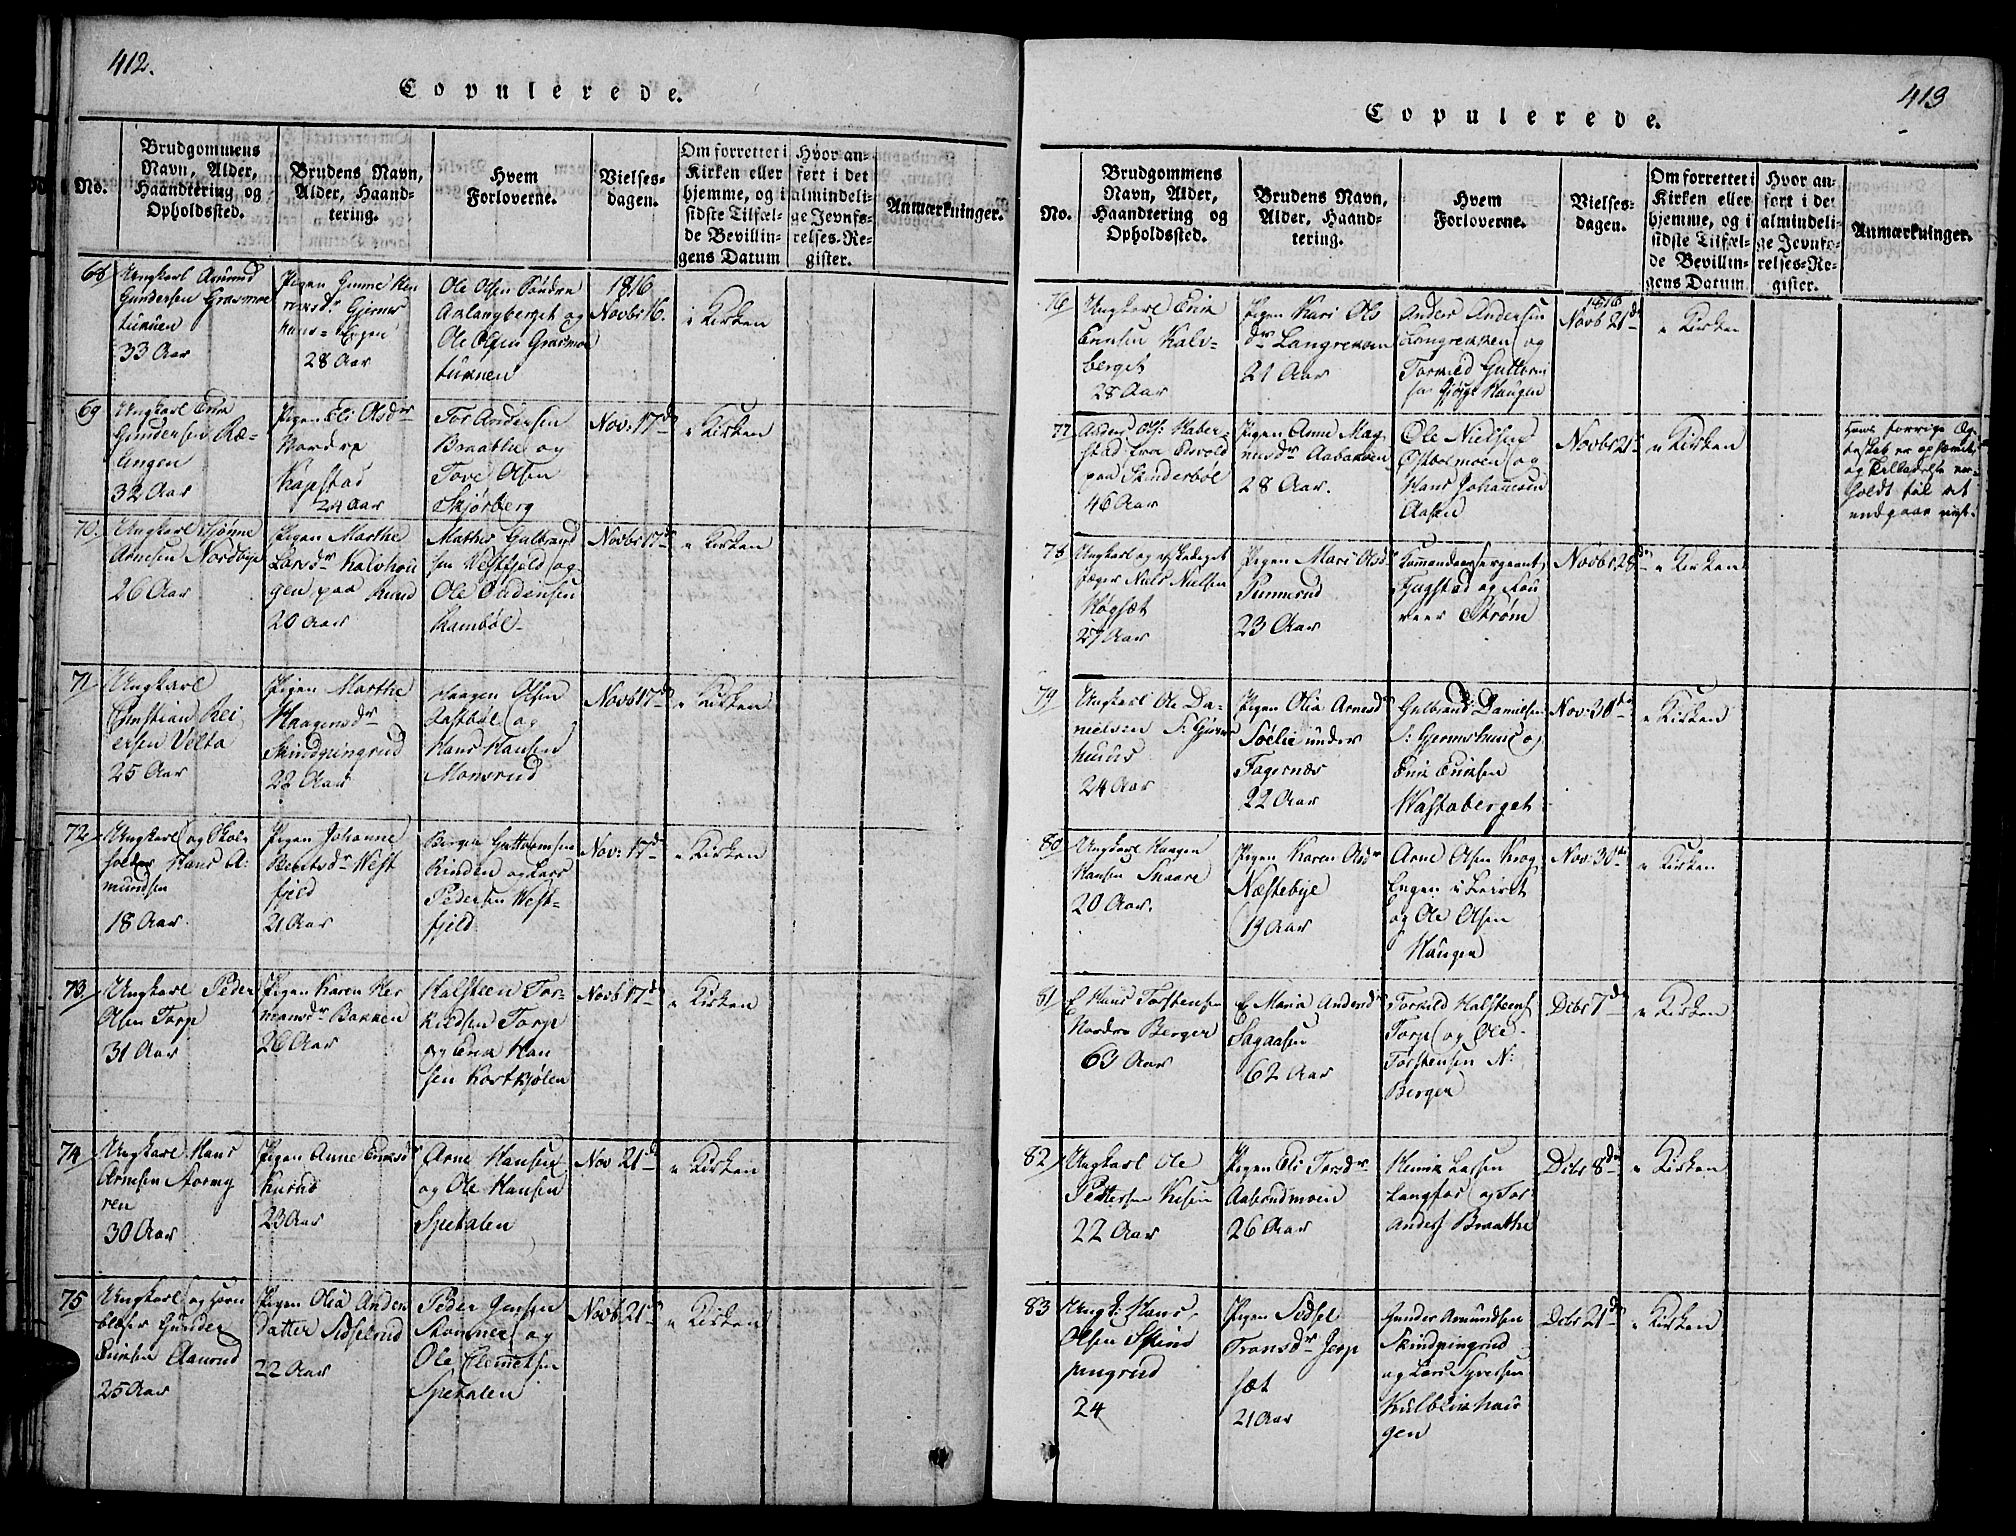 412.
Copulerede.
No.
Brudgommens
Navn, Alder,
Haandtering og
Opholdssted.
Brudens Navn,
Alder, Haand-
tering.
Hvem
Forloverne.
Vielses-
dagen.
Om forrettet i
Kirken eller
hjemme, og i
sidste Tilfæl-
de Bevillin-
gens Datum
Hvor an-
ført i det
almindeli-
ge Jevnfø-
relses-Re-
gister.
Anmærkninger.
68
Ungkarl Amund
Gundersen Grasmoe
tuknen
33 Aar
Pigen Gunne Hen
28 Aar
Ole Olsen Søndre
Aslangberget og
Ole Olsen Grasmoe
tuknen
1816
Novbr 16.
i Kirken
69
Ungkarl
Gundersen Ræ-
lingen
32 Aar
Pigen Eli Olsdr
Nordre
Kopstad
24 Aar
Tor Andersen
Braathe og
Tove Olsen
Skjørberg
Nov: 17d
i Kirken
70.
Ungkarl
Arnesen Nordbye
26 Aar
Pigen Marthe
Larsdr Kalvhou
gen paa Lund
20 Aar
Mathis Gulbrand
sen Westfjeld og
Ole
Rambøl
Novbr 17d
i Kirken
71
Ungkarl
Christian Rei
ersen Velta
25 Aar
Pigen Marthe
Haagensdr
Skindpungrud
22 Aar
Haagen Olsen
og
Hans Hansen
Monsrud
Novb 17d
i Kirken
72
Ungkarl og Skol-
holder Hans A-
mundsen
18 Aar
Pigen Johanne
West
fjeld
21 Aar
Børger Guttormsen
Rinden og Lars
Pedersen West-
fjeld
Nov: 17d
i Kirken
73
Ungkarl Peder
Olsen Torp
31 Aar
Pigen Karen Her
mansdr Bakken
26 Aar
Halsteen Tor-
kildsen Torp
og Erik Han
sen Kortkjølen
Novb 17d
i Kirken
74
Ungkarl Hans
Arnesen Stormy
ren
30 Aar
Pigen Anne Eriksdr
23 Aar
Arne Hansen
og Ole Hansen
Spetalen
Nov 21d
i Kirken
75
Ungkarl og horn
blæser Gunder
Eriksen Aamud
25 Aar
Pigen Olia Anders
datter Sidselrud
22 Aar
Peder Jensen
Stommer og
Ole Clemetsen
Spetalen
Novb 21d
i Kirken
413
Copulerede.
No.
Brudgommens
Navn, Alder,
Haandtering og
Opholdssted.
Brudens Navn,
Alder, Haand-
tering.
Hvem
Forloverne.
Vielses-
dagen.
Om forrettet i
Kirken eller
hjemme, og i
sidste Tilfæl-
de Bevillin-
gens Datum
Hvor an-
ført i det
almindeli-
ge Jevnfø-
relses-Re-
gister.
Anmærkninger.
76
Ungkarl Erik
Ericsen Kalv-
berget
28 Aar
Pigen Kari Ols
dr Langrekken
21 Aar
Anders Andersen
Langrekken og
Torkild Guttorm
sen Haugen
1816
Novb 21d
i Kirken
77
Anders Ols: Haber-
stad fra Edsvold
paa Skinderbøl
46 Aar
Pigen Anne Mag
nusdr Aabakken
28 Aar.
Ole Nielsen
Østbolmoen og
Hans Johansen
Aasen
Novbr 21d
i Kirken
Hans forrige Æg-
teskab er ophævet
og Tilladelse er-
holdt til at
indgaae nyt.
78
Ungkarl og afskediget
Jæger Niels Nielsen
Høgsæt
27 Aar
Pigen Mari Olsdr
Tunnerud
23 Aar
Comandeersergeant
Fjugstad og Cou
reer Strøm
Novbr 28de
i Kirken
79
Ungkarl Ole Da-
nielsen S: Gjerms
huus
24 Aar
Pigen Olia Arnesdr
Solie under
Fagernæs
22 Aar
Gulbrand Danielsen
S: Gjermshuus og
Erik Eriksen
Wastaberget
Nov: 30te
i Kirken
80
Ungkarl Haagen
Hansen Snaare
20 Aar.
Pigen Karen Olsdr
Næstebye
19 Aar
Arne Olsen Krog
Engen i Leiret
og Ole Olsen
Haugen
Nov: 30te
i Kirken
81
E Hans Torstensen
Nordre Berger
63 Aar
E Maria Andersdr
Sagaasen
62 Aar
Torkild Halsteens
Torp og Ole
Torstensen N:
Berger
Debr 7d
i Kirken
82
Ungkarl Ole
Pettersen Kilsen
22 Aar
Pigen Eli Torsdr
Aaserudmoen
26 Aar
Henrik Larsen
Langfos og Tor
Anders Braathe
Debr 8de
i Kirken
83
Ungk: Hans
Olsen Skind
pungrud
24
Pigen Sidsel
Fransdr Jerp
sæt
21 Aar
Gunder Amundsen
Skindpungrud
og Lars Syversen
Kulblikhou
gen
Debr 21d
i Kirken